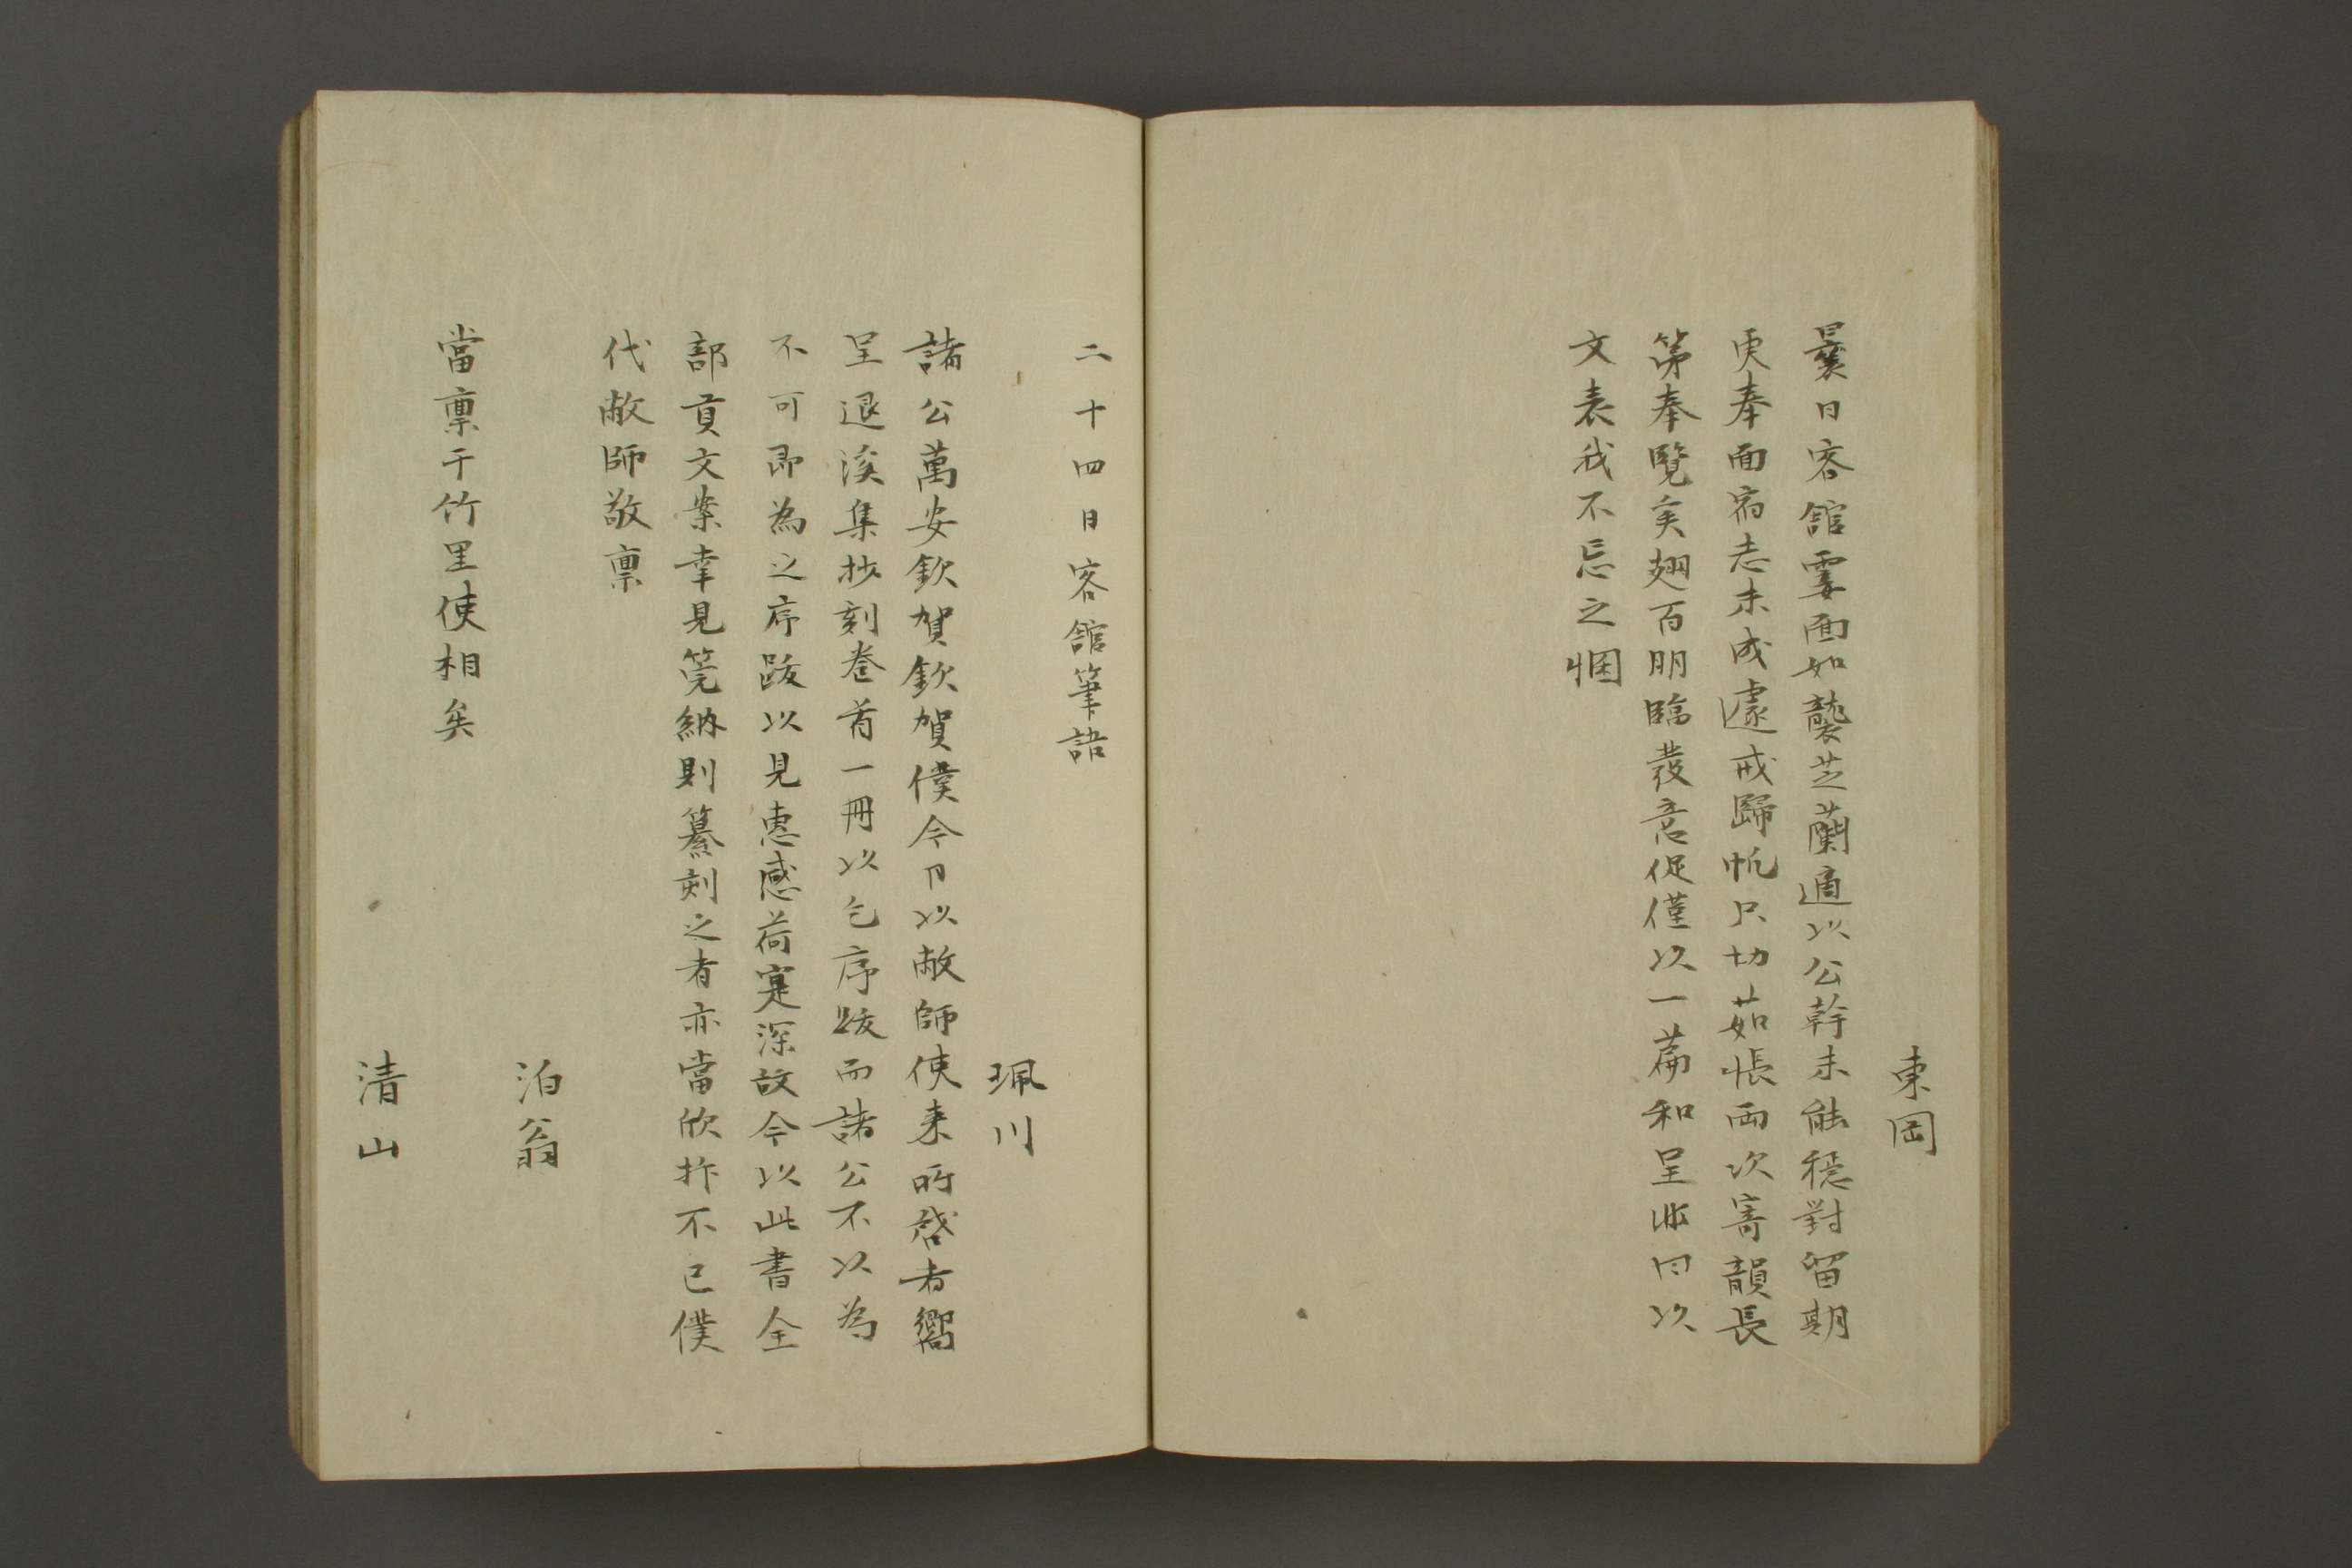 東岡
曩日客館霎面如襲芝蘭適以公幹未能穩對留期
更奉面宿志未成遽戒歸帆只切茹悵両次寄韻長
第奉覽矣翅百朋臨發悤促僅以一篇和呈非曰以
文表我不忘之悃
二十四日客舘筆語
珮川
諸公萬安欽賀欽賀僕今日以敝師使来所啓者嚮
呈退溪集抄刻巻首一冊以乞序跋而諸公不以為
不可即為之序跋以見恵感荷寔深故今以此書全
部貢文案幸見筦納則纂刻之者亦當欣抃不已僕
代敝師敬稟
泊翁
當稟于竹里使相矣
清山